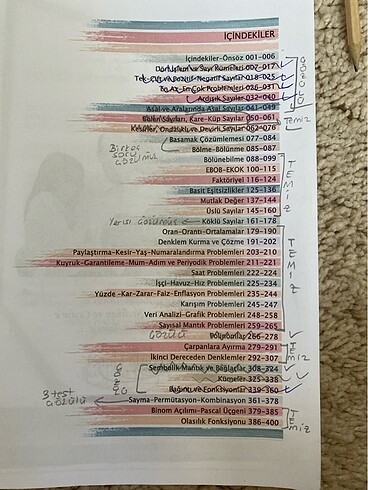 İÇİNDEKİLER
İçindekiler-Önsöz 001-006
Dört İşlem ve Sayı Kümeleri 007-017
Tek-Çift ve Pozitif-Negatif Sayılar 018-025
En Az-En Çok Problemleri 026-031
Ardışık Sayılar 032-040
Asal ve Aralarında Asal Sayılar 041-049
Bölen Sayıları, Kare-Küp Sayılar 050-061
TEMİZ
Kesirler, Ondalıklı ve Devirli Sayılar 062-076
Basamak Çözümlemesi 077-084
Birkaç soru çözülmüş
Bölme-Bölünme 085-087
Bölünebilme 088-099
EBOB-EKOK 100-115
Faktöriyel 116-124
Basit Eşitsizlikler 125-136
Mutlak Değer 137-144
Üslü Sayılar 145-160
TEMİZ
Yarısı çözülmüş
Köklü Sayılar 161-178
Oran-Orantı-Ortalamalar 179-190
Denklem Kurma ve Çözme 191-202
Paylaştırma-Kesir-Yaş-Numaralandırma Problemleri 203-210
Kuyruk-Garantileme-Mum-Adım ve Periyodik Problemler 211-221
Saat Problemleri 222-224
İşçi-Havuz-Hız Problemleri 225-234
Yüzde-Kar-Zarar-Faiz-Enflasyon Problemleri 235-244
Karışım Problemleri 245-247
Veri Analizi-Grafik Problemleri 248-258
Sayısal Mantık Problemleri 259-265
TEMİZ
ÇÖZÜLÜ
Polinomlar 266-278
Çarpanlara Ayırma 279-291
İkinci Dereceden Denklemler 292-307
TEMİZ
Sembolik Mantık ve Bağlaçlar 308-324
Kümeler 325-338
Bağıntı ve Fonksiyonlar 339-360
3 test çözülü
Sayma-Permütasyon-Kombinasyon 361-378
Binom Açılımı-Pascal Üçgeni 379-385
Olasılık Fonksiyonu 386-400
TEMİZ